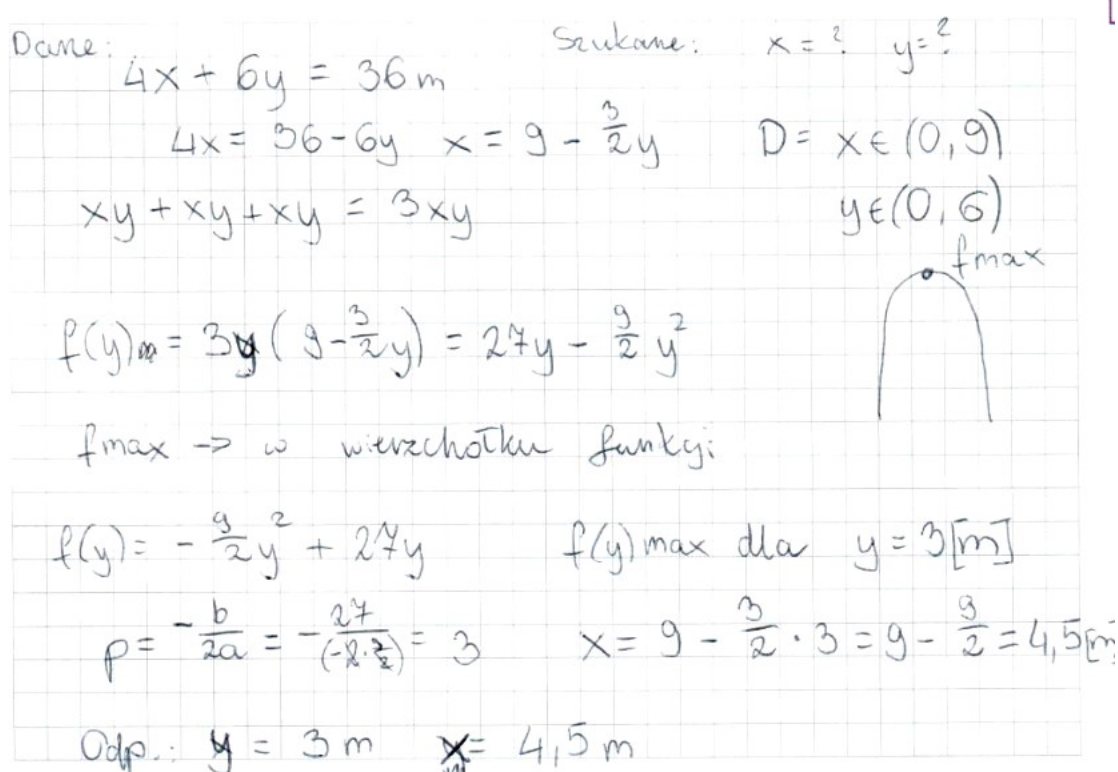 Dane: Szukane: x = ? y = ?
4x + 6y = 36 m
4x = 36 - 6y x = 9 - 3/2 y D = x ∈ (0, 9)
xy + xy + xy = 3xy y ∈ (0, 6)
fmax
f(y) = 3y ( 9 - 3/2 y ) = 27y - 9/2 y²
fmax -> w wierzchołku funkcji
f(y) = - 9/2 y² + 27y f(y) max dla y = 3 [m]
p = -b/2a = - 27/(-2·9/2) = 3 x = 9 - 3/2 · 3 = 9 - 9/2 = 4,5 [m]
Odp.: y = 3 m x = 4,5 m